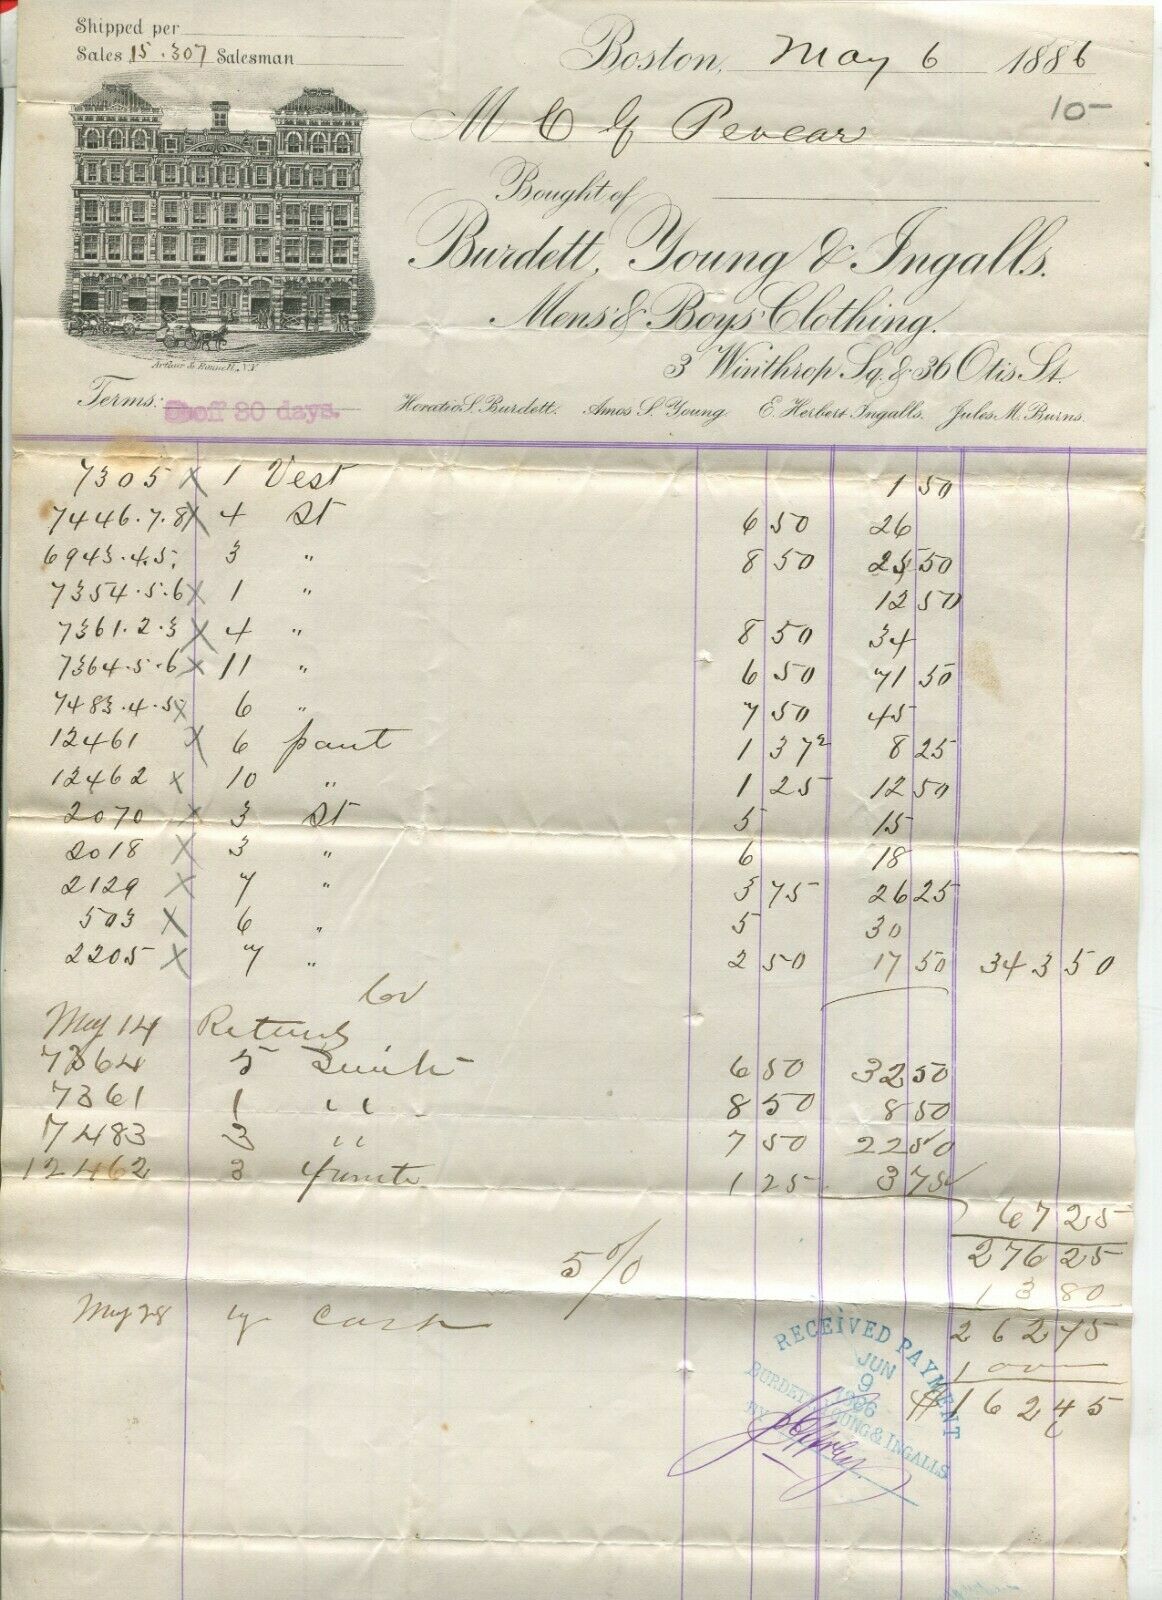 Shipped per
Sales 15.307 Salesman
Boston, May 6 1886
10-
M C G Pevear
Bought of
Burdett, Young & Ingalls.
Mens' & Boys' Clothing.
3 Winthrop Sq. & 36 Otis St.
Arthur & Bonnell, N.Y.
Terms: off 30 days.
Horatio S. Burdett. Amos S. Young E. Herbert Ingalls. Jules M. Burns.
7305 x 1 Vest 1 50
7446.7.8 x 4 St 6 50 26
6943.4.5. 3 " 8 50 25 50
7354.5.6 x 1 " 12 50
7361.2.3 x 4 " 8 50 34
7364.5.6 x 11 " 6 50 71 50
7483.4.5 x 6 " 7 50 45
12461 x 6 pant 1 37 2 8 25
12462 x 10 " 1 25 12 50
2070 x 3 St 5 15
2018 x 3 " 6 18
2129 x 7 " 3 75 26 25
503 x 6 " 5 30
2205 x 7 " 2 50 17 50 343 50
Cr
May 14 Returns
7364 5 Suits 6 50 32 50
7361 1 " 8 50 8 50
7483 3 " 7 50 22 50
12462 3 Pants 1 25 3 75
67 25
276 25
5% 13 80
May 28 by Cash 262 45
100 —
$162 45
RECEIVED PAYMENT
JUN
9
1886
BURDETT, YOUNG & INGALLS
BY